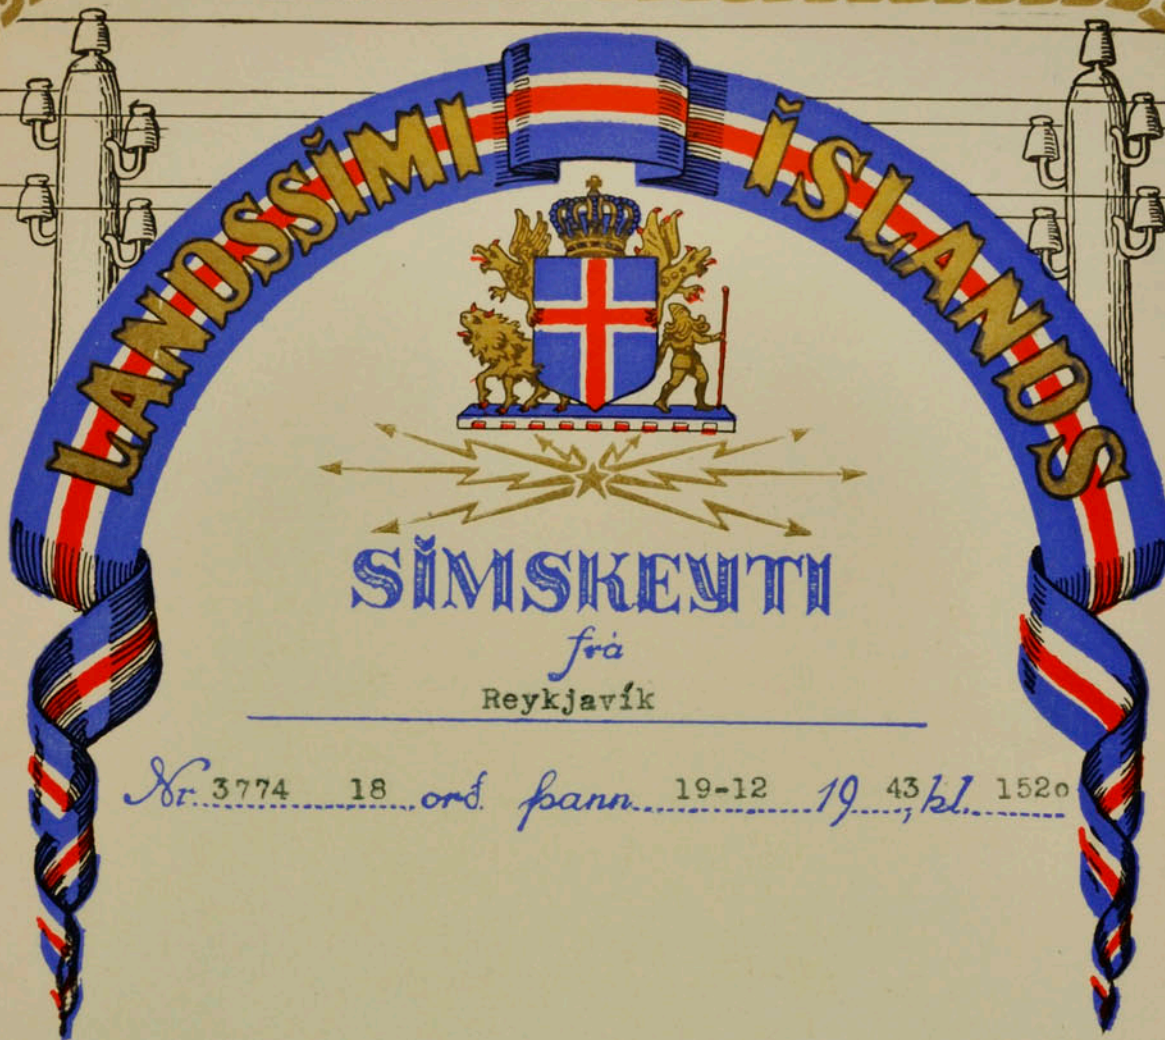 LANDSSÍMI ÍSLANDS
SÍMSKEYTI
frá
Reykjavík
Nr. 3774 18 orð. þann 19-12 19 43, kl. 152o